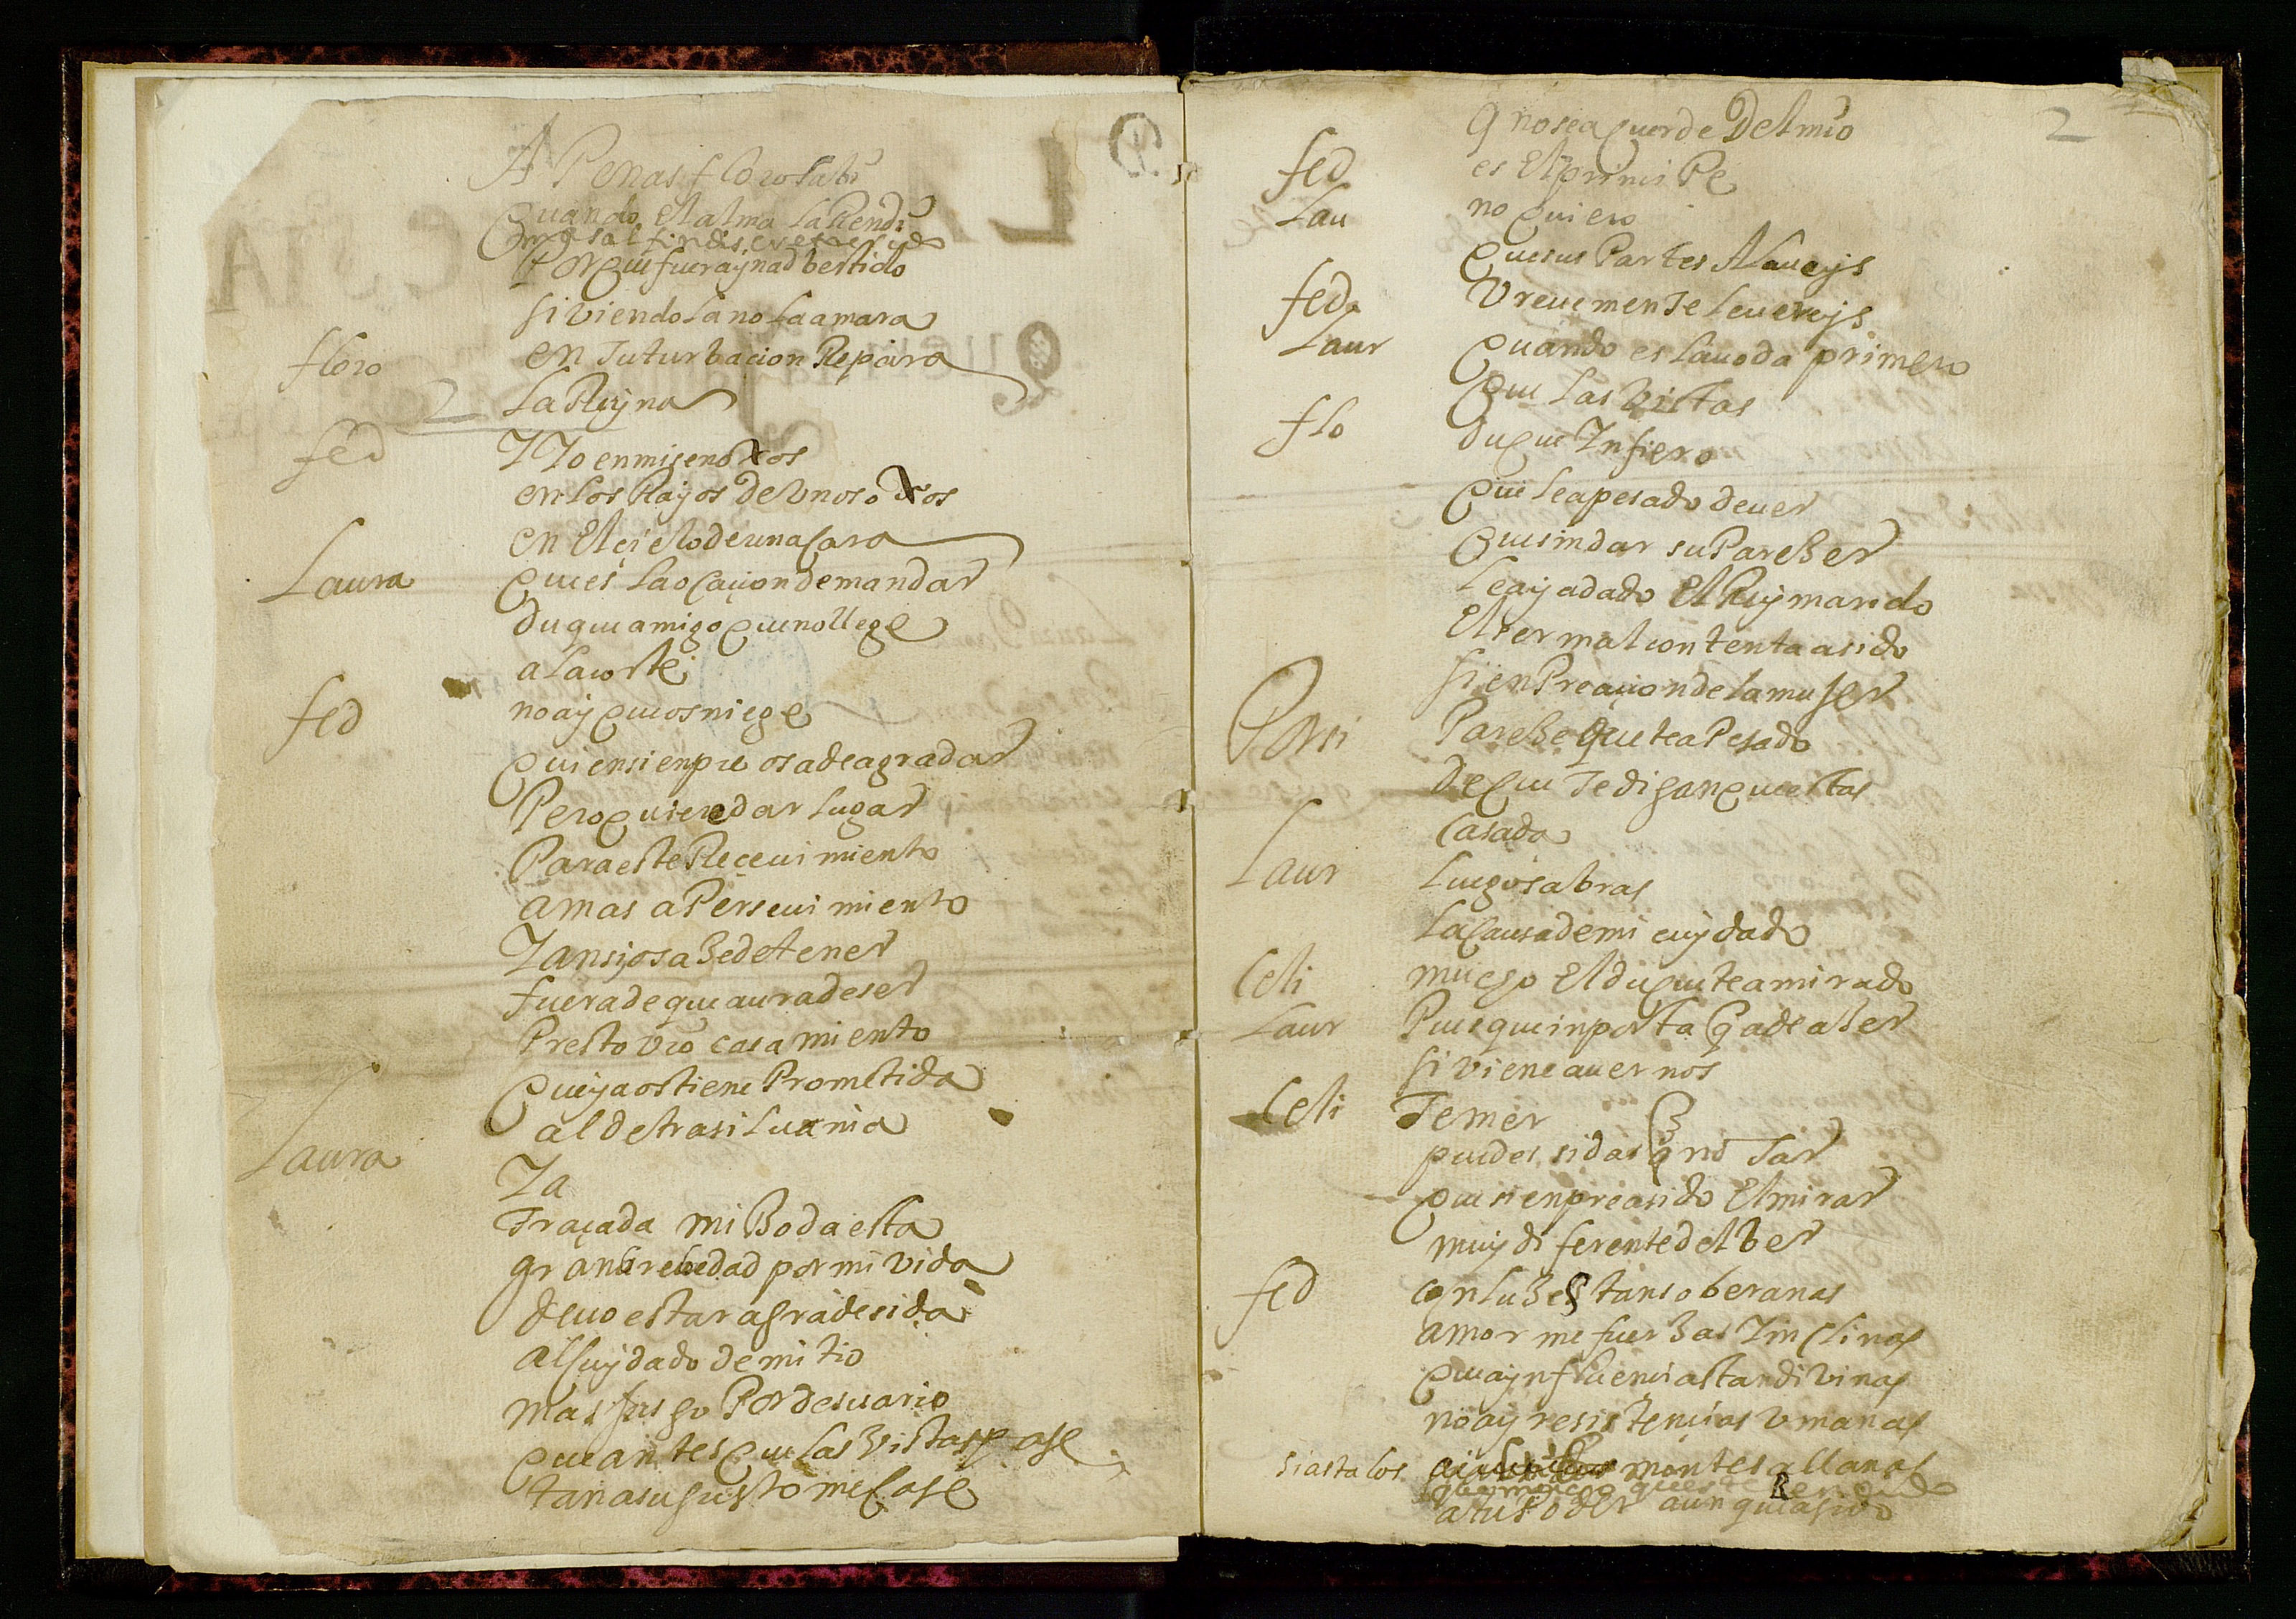 A Penas floro la bi
quando el alma la Rendi
mas al fin
Porque fuera ynadbertido
si viendola no la amara
floro en tu turbacion Repara
La Reyna
fed Y Yo en mis enoxos
en los Rayos de unos oxos
en el çielo de una cara
Laura que es la ocaçion de mandar
duque amigo que no llege
a la corte
fed no ay que os niege
quien sienpre os a de agradar
Pero quise dar lugar
Para este Reçevimiento
a mas aPersevimiento
Y ansi os aBe detener
fuera de que aura de ser
Presto vro casamiento
que ya os tiene Prometida
al de trasiluania
Laura Ya
traçada mi Boda esta
gran brebedad por mi vida
devo estar agradesida
al cuydado de mi tio
mas jusgo Por desuario
que antes que las vistas pase
tan a su gusto me case
2
q no se a cuerde Del mio
fed es el prinçiPe
Lau no quiero
que sus Partes Alaueys
fed vreuemente le uereys
Laur quando es la uoda primero
que las vistas
flo duque Ynfiero
que le a pesado de uer
que sin dar su PareBer
le aya dado el Rey marido
el ser mal contenta a sido
sienPre açion de la muger
Porsi PareBe que te a Pesado
de que te digan que estas
casada
Laur luego sabras
la causa de mi cuydado
Celi mucho el duque te a mirado
Laur Pues que inporta q a de aber
si viene a uernos
Celi Temer
puedes si das q notar
que sienpre a sido el mirar
muy diferente del ber
fed con luBes tan soberanas
amor me fuerBas Y inclinas
que a ynfluençias tan divinas
no ay resistençias vmanas
si asta los montes allanas
a tu Poder aunque a sido